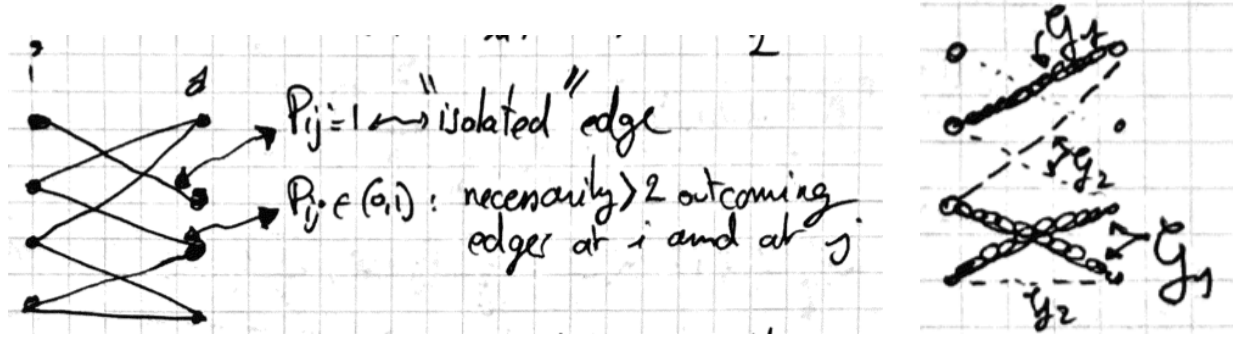 i
j
P_ij = 1 ⟷ "isolated" edge
P_ij ∈ (0,1) : necessarily > 2 outcoming
edges at i and at j
2
G_1
G_2
G_1
G_2